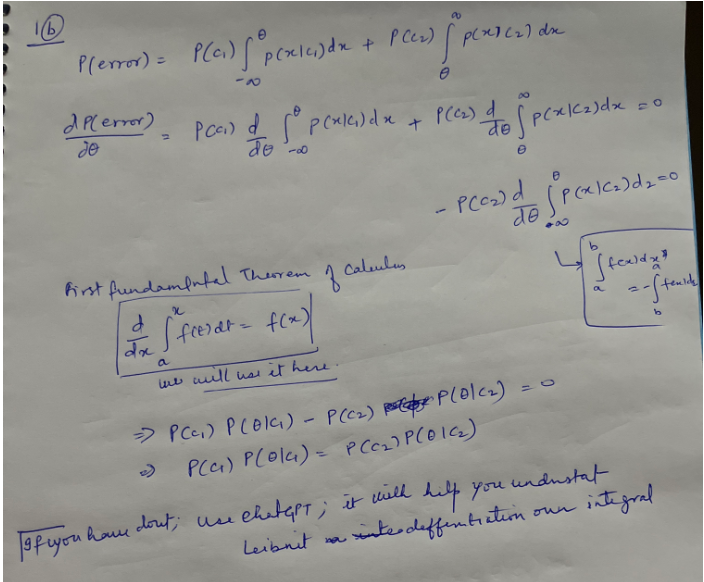 1(b)
P(error) = P(C₁) ∫_{-∞}^{θ} p(x|C₁) dx + P(C₂) ∫_{θ}^{∞} p(x|C₂) dx
dP(error)/dθ = P(C₁) d/dθ ∫_{-∞}^{θ} p(x|C₁) dx + P(C₂) d/dθ ∫_{θ}^{∞} p(x|C₂) dx = 0
- P(C₂) d/dθ ∫_{-∞}^{θ} p(x|C₂) d₂ = 0
↳ ∫_{a}^{b} f(x) dx
= - ∫_{b}^{a} f(x) dx
First fundamental Theorem of Calculus
d/dx ∫_{a}^{x} f(t) dt = f(x)
we will use it here.
⇒ P(C₁) P(θ|C₁) - P(C₂) P(θ|C₂) = 0
⇒ P(C₁) P(θ|C₁) = P(C₂) P(θ|C₂)
If you have dout; use chatGPT; it will help you undustat
Leibnit deffentiation over integral